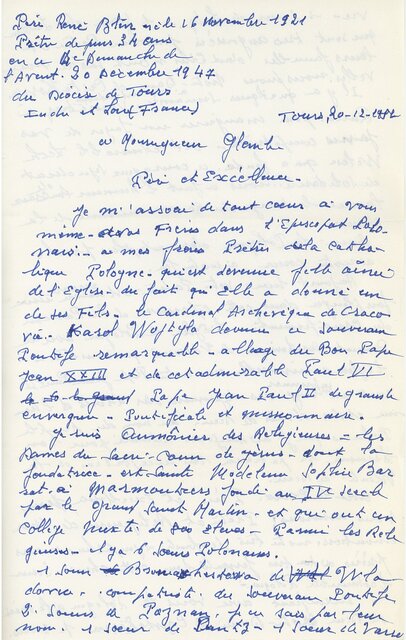 Père René né le 16 Novembre 1921
Prêtre depuis 34 ans
en ce 4e Dimanche de
l'Avent. 20 Décembre 1947
du Diocèse de Tours
Indre et Loire (France)
Tours, 20-12-1981
a Monseigneur Glemp
Père et Excellence -
Je m'associe de tout coeur à vous
même - à vos Frères dans l'Episcopat Polo-
nais - a mes frères Prêtres de la Catho-
lique Pologne - qui est devenue fille aînée
de l'Eglise - du fait qu'elle a donné un
de ses Fils - le Cardinal Archevêque de Craco
vie - Karol Wojtyla devenu ce Souverain
Pontife remarquable - a l'image du Bon Pape
Jean XXIII et de cet admirable Paul VI
Pape Jean Paul II de grande
envergure - Pontificale et missionnaire.
Je suis Aumônier des Religieuses = les
Dames du Sacré-Coeur de Jésus - dont la
fondatrice - est Sainte Madeleine Sophie Bar
rat - a Marmoutiers fondé au IVe siècle
par le Grand Saint Martin - et qui ont un
Collège Mixte de 800 élèves - Parmi les Reli
gieuses - il y a 6 Soeurs Polonaises.
1 Soeur de
compatriote du Souverain Pontife
2. Soeurs de Poznan, je ne sais pas leur
nom. 1 Soeur de - 1 Soeur de